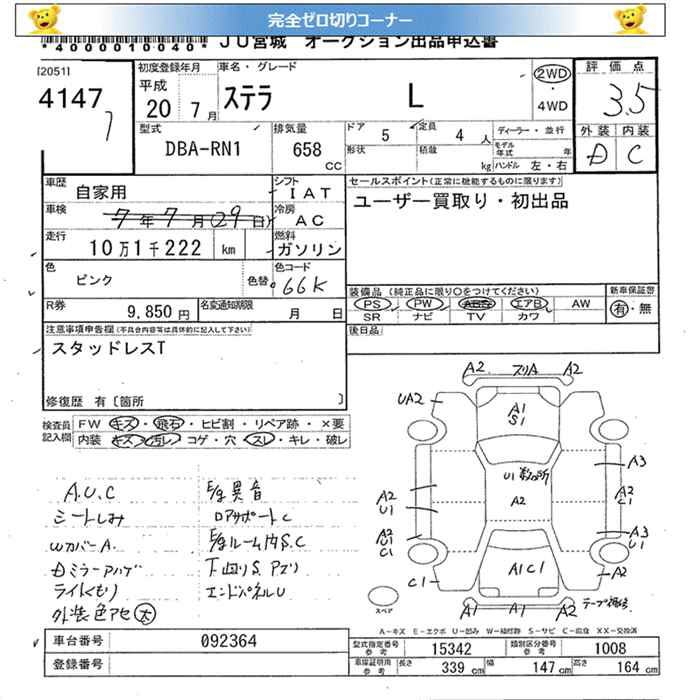 完全ゼロ切りコーナー
*4000010040* JU宮城 オークション出品申込書
初度登録年月 車名・グレード 評価点
4147 平成 20 7月 ステラ L 2WD・4WD 3.5
型式 排気量 ドア 5 定員 4人 ディーラー・並行 外装 内装
DBA-RN1 658 CC 形状 積載 kg モデル年式 年 ハンドル 左・右 D C
車歴 自家用 シフト IAT セールスポイント(正常に機能するものに限ります)
車検 7年7月(29日) 冷房 AC ユーザー買取り・初出品
走行 10万1千222 km 燃料 ガソリン
色 ピンク 色替 色コード 66K 装備品(純正品に限り○をつけてください) 新車保証書
R券 9,850円 名変通知期限 月 日 PS PW ABS エアB AW 有・無
SR ナビ TV カワ
注意事項申告欄(不具合内容等は具体的に記入して下さい) 後日品
スタッドレスT
修復歴 有〔箇所 〕
検査員記入欄 FW キズ・飛石・ヒビ割・リペア跡・×要
内装 キズ・汚レ・コゲ・穴・スレ・キレ・破レ
A.U.C E/g異音
シートしみ ロアサポートC
Wカバー A. E/gルーム内S.C
Dミラーアハゲ 下回りS.アズリ
ライトくもり エンドパネルU
外装色アセ 大
A2 スリA A2
UA2 A1 S1
U1 数ヶ所
A3
A2 U1 A2 A2 C1
A2 U1 C1 A3 U1
C1 A1C1 A2
A1 A1 A2 テープ補修
スペア
A-キズ E-エクボ U-凹み W-補修跡 S-サビ C-腐食 XX-交換済
車台番号 092364 型式指定番号 参考 15342 類別区分番号 参考 1008
登録番号 車庫証明用 参考 長さ 339 cm 幅 147 cm 高さ 164 cm